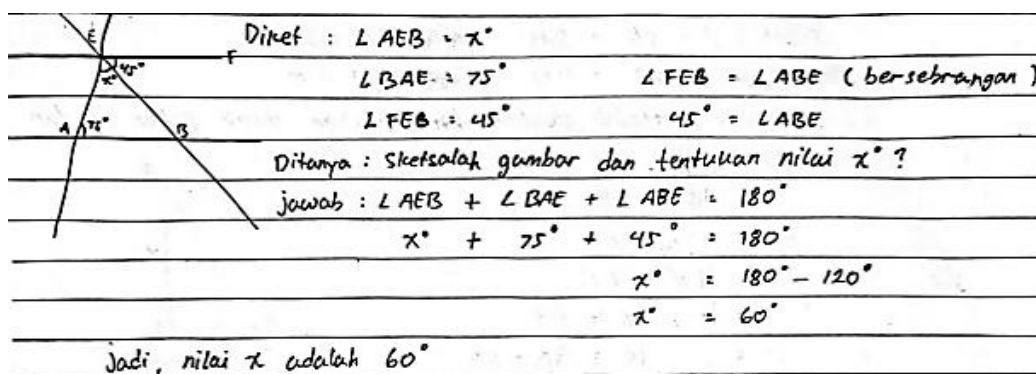 E
F
x° 45°
A 75° B
Diket : ∠ AEB = x°
∠ BAE = 75° ∠ FEB = ∠ ABE (bersebrangan)
∠ FEB = 45° 45° = ∠ ABE
Ditanya : Sketsalah gambar dan tentukan nilai x° ?
jawab : ∠ AEB + ∠ BAE + ∠ ABE = 180°
x° + 75° + 45° = 180°
x° = 180° - 120°
x° = 60°
Jadi, nilai x adalah 60°